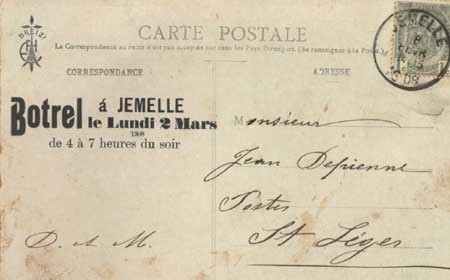 BREIZ!
CARTE POSTALE
La Correspondance au recto n'est pas acceptée par tous les Pays Etrangers. (Se renseigner à la Poste.)
CORRESPONDANCE
ADRESSE
JEMELLE
1908
Botrel á JEMELLE
le Lundi 2 Mars
1908
de 4 à 7 heures du soir
Monsieur
Jean Depienne
Postes
St Léger
D. et M.